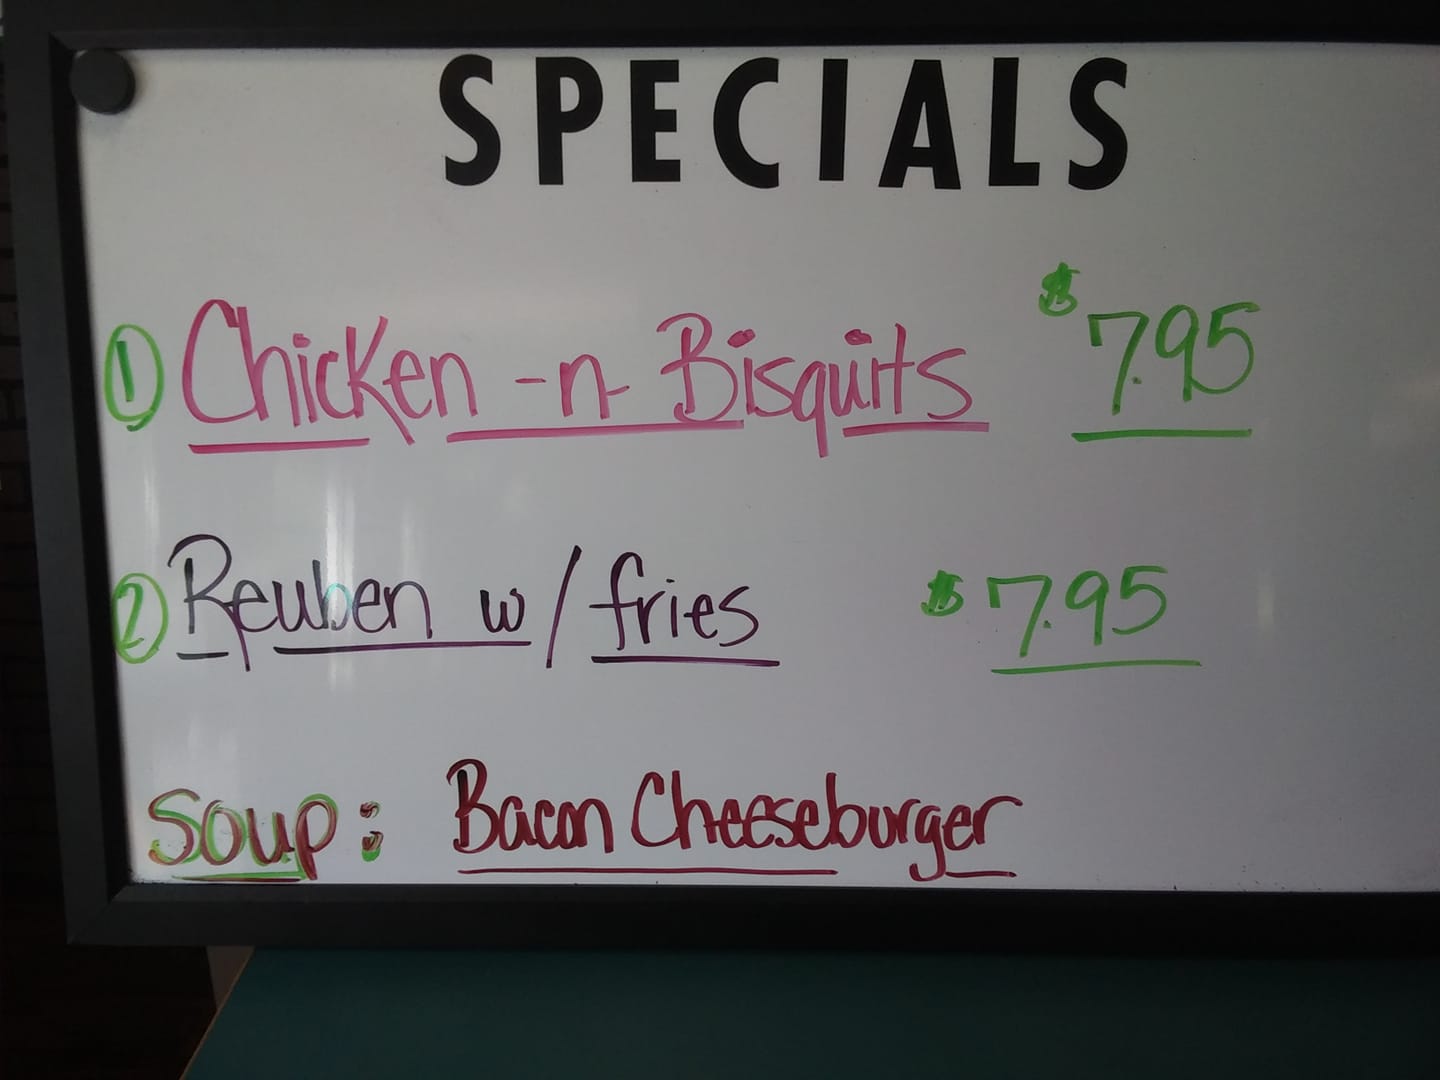 SPECIALS
① Chicken -n- Bisquits $7.95
② Reuben w/fries $7.95
Soup: Bacon Cheeseburger